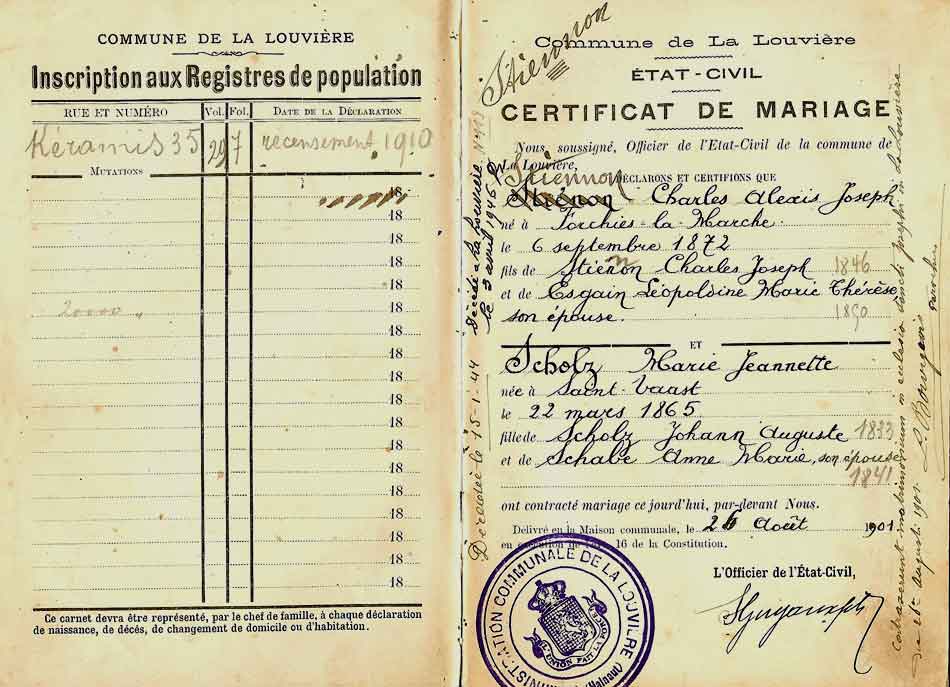 COMMUNE DE LA LOUVIÈRE
Inscription aux Registres de population
RUE ET NUMÉRO Vol. Fol. DATE DE LA DÉCLARATION
Kéramis 35 29 7 récensement 1910
MUTATIONS
18
18
18
18
18
20000 „
18
18
18
18
18
18
18
18
18
18
18
18
18
Ce carnet devra être représenté, par le chef de famille, à chaque déclaration
de naissance, de décès, de changement de domicile ou d'habitation.
Décédée le 15-1-44
Décédé à La Louvière
le 3 avril 1946
Stiennon
Commune de La Louvière
ÉTAT-CIVIL
CERTIFICAT DE MARIAGE
Nous, soussigné, Officier de l'Etat-Civil de la commune de
La Louvière,
DÉCLARONS ET CERTIFIONS QUE
Stiennon
Stiénon Charles Alexis Joseph
né à Forchies-la-Marche
le 6 septembre 1872
fils de Stiénon Charles Joseph 1846
n
et de Esgain Léopoldine Marie Thérèse,
son épouse. 1850
ET
Scholz Marie Jeannette
née à Saint-Vaast
le 22 mars 1865
fille de Scholz Johann Auguste 1833
et de Schabe Anne Marie, son épouse
1841
ont contracté mariage ce jourd'hui, par-devant Nous.
Délivré en la Maison communale, le 26 Août 1901
en 16 de la Constitution.
L'Officier de l'État-Civil,
ADMINISTRATION COMMUNALE DE LA LOUVIÈRE
(Hainaut)
L'UNION FAIT LA FORCE
contraxerunt matrimonium in ecclesia sancti Josephi in La Louvière
augusti 1901
parochus